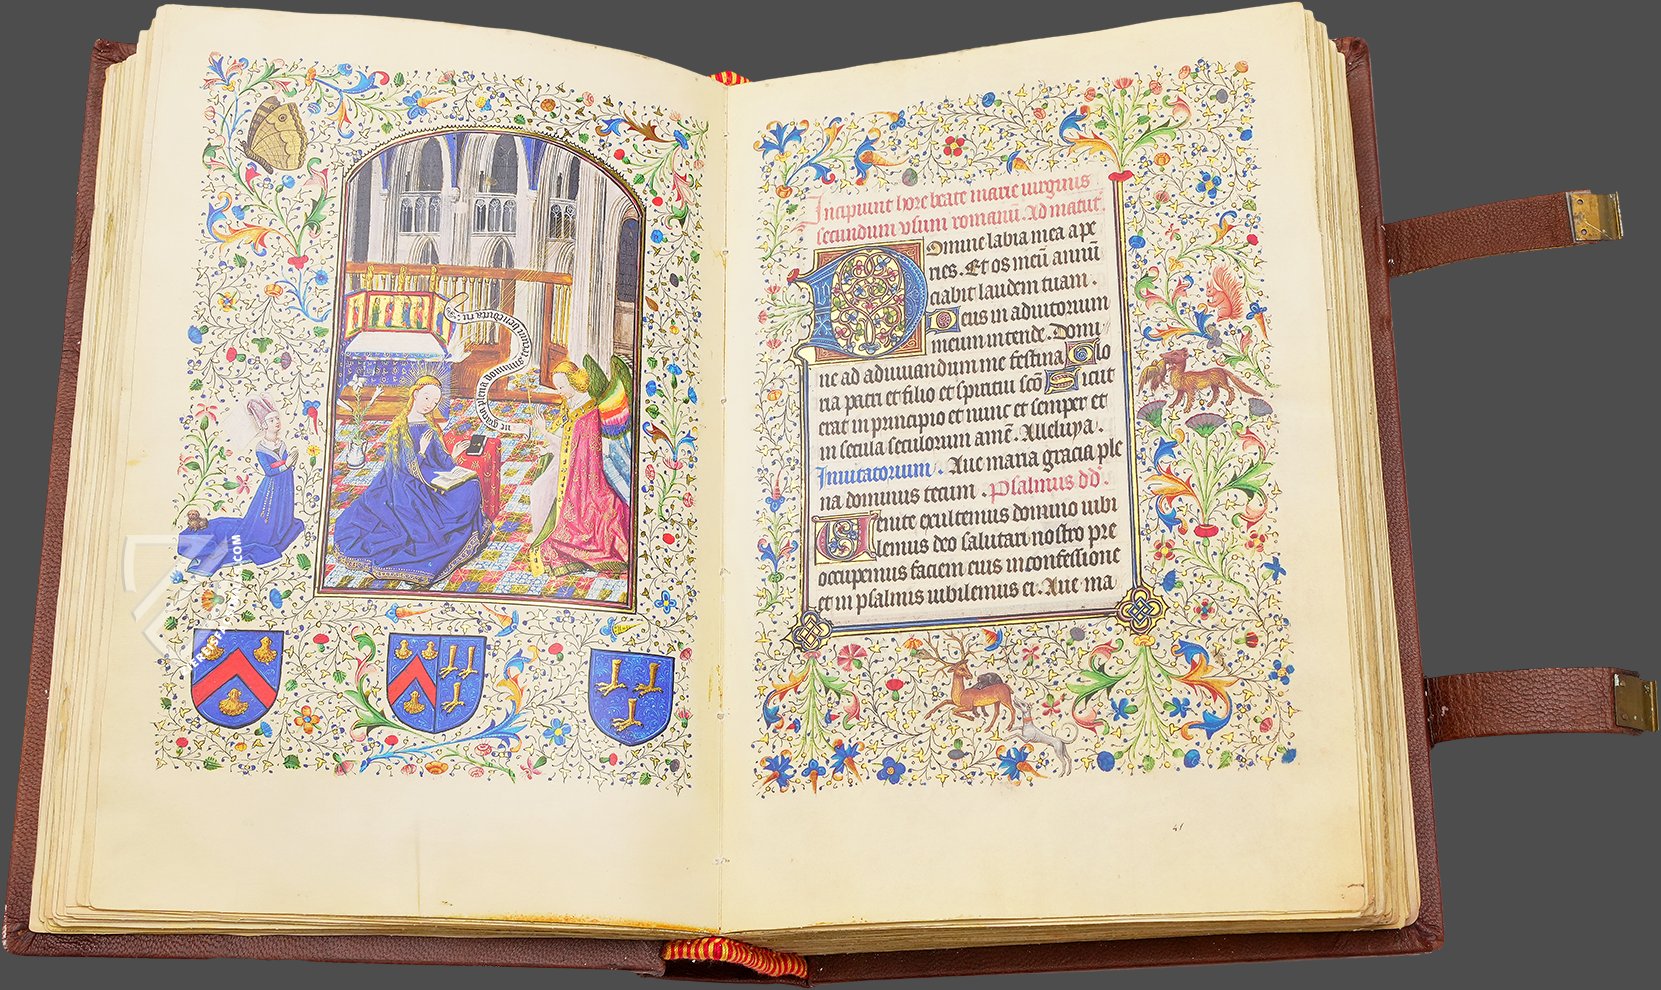 ave gracia plena dominus tecum benedicta tu
Incipiunt hore beate marie virginis
secundum usum romanū. Ad matut̄.
Domine labia mea ape
ries. Et os meū annū
ciabit laudem tuam.
Deus in adiutorium
meum intende. Domi
ne ad adiuuandum me festina. Glo
ria patri et filio et spiritui scō. Sicut
erat in principio et nunc et semper et
in secula seculorum amē. Alleluya.
Inuitatorium. Aue maria gracia ple
na dominus tecum. Psalmus dd̄.
Uenite exultemus domino iubi
lemus deo salutari nostro pre
occupemus faciem eius in confessione
et in psalmis iubilemus ei. Aue ma
41